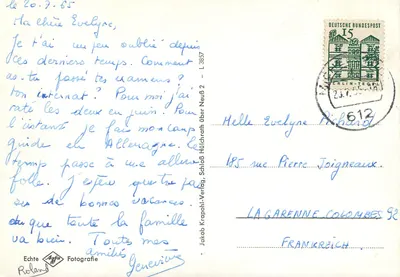 le 20-7-65
Ma chère Evelyne,
Je t'ai un peu oublié depuis
ces derniers temps. Comment
as-tu passé tes examens ?
ton internat ? Pour moi j'ai
raté les deux en juin. Pour
l'instant je fais mon camp
guide en Allemagne. Le
temps passe à une allure
folle. J'espère que tu pas
ses de bonnes vacances.
que toute la famille
va bien. Toutes mes
amitiés
Geneviève
Echte Agfa Fotografie
Roland
Jakob Krapohl-Verlag, Schloß Hülchrath über Neuß 2 - L 3857
DEUTSCHE BUNDESPOST
15
612
Melle Evelyne Richard
185 rue Pierre Joigneaux.
LA GARENNE COLOMBES 92
FRANKREICH.